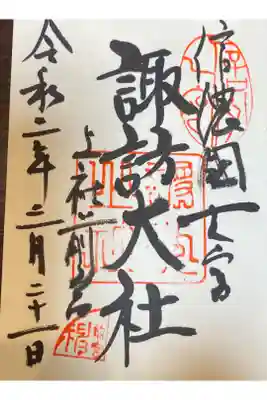 信濃國一之宮
諏訪大社
上社前宮
令和二年二月二十一日